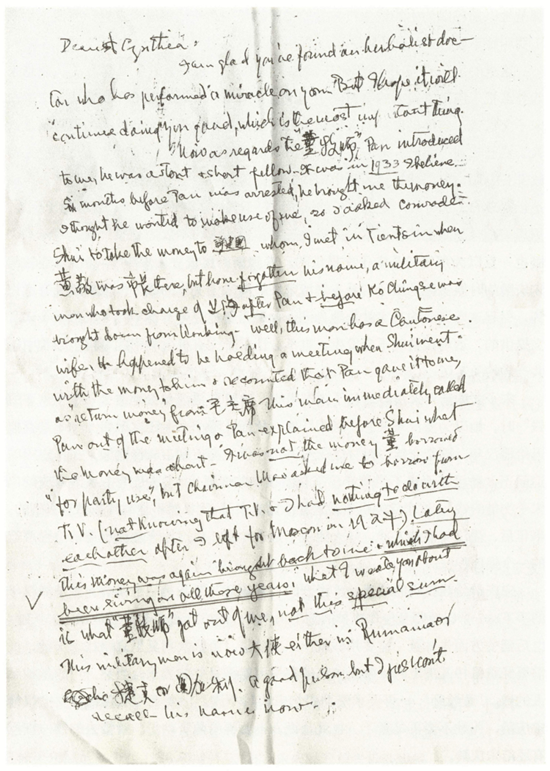 Dearest Cynthia,
I am glad you've found an herbalist doc-
tor who has performed a miracle on you. But I hope it will
continue doing you good, which is the most important thing.
Now as regards the "董牧师" Pan introduced
to me, he was a stout & short fellow. It was in 1933 I believe.
Six months before Pan was arrested, he brought me the money.
I thought he wanted to make use of me, so I asked comrade
Shui to take the money to whom I met in Tientsin when
黄敬 was 市长 there, but have forgotten his name, a military
man who took charge of 上海 after Pan & before Ko Chingse was
brought down from Nanking. Well, this man has a Cantonese
wife. He happened to be holding a meeting when Shui went
with the money to him & recounted that Pan gave it to me,
as "return money" from 毛主席. This man immediately called
Pan out of the meeting & Pan explained before Shui what
the money was about. It was not the money 董 borrowed
"for party use", but Chairman Mao asked me to borrow from
T.V. (not knowing that T.V. & I had nothing to do with
each other after I left for Moscow in 1927). Later
this money was again brought back to me & which I had
been saving all those years. What I wrote you about
is what "董牧师" got out of me, not this special sum.
This military man is now 大使 either in Rumania or
捷克 or 匈加利. A good person but I just can't
recall his name now.